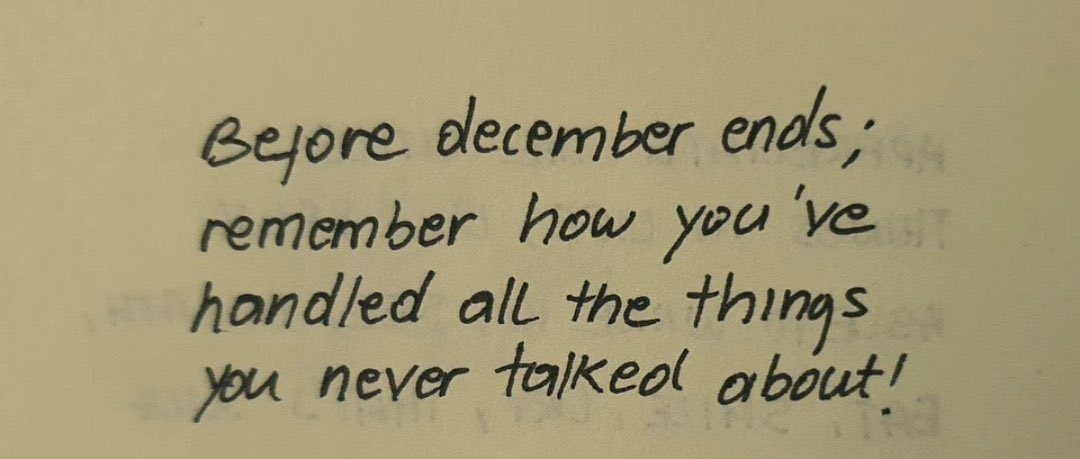 Before december ends;
remember how you've
handled all the things
you never talked about!